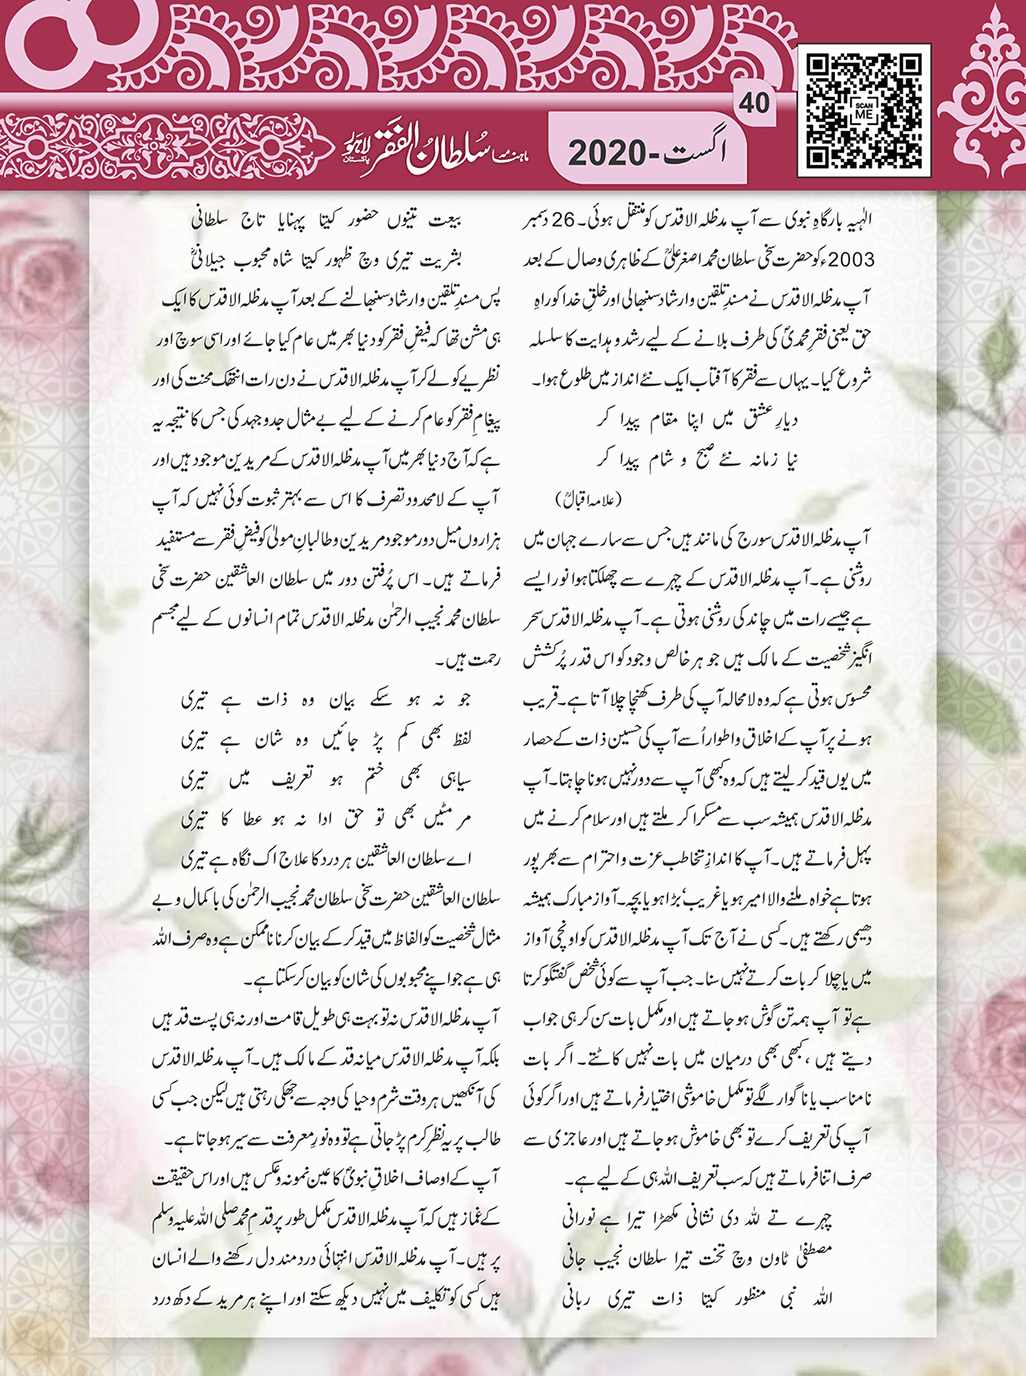 40
SCAN
ME
ماہنامہ سلطان الفقر لاہور
پاکستان
اگست-2020
الٰہیہ بارگاہِ نبوی سے آپ مدظلہ الاقدس کو منتقل ہوئی۔ 26 دسمبر
2003ء کو حضرت سخی سلطان محمد اصغر علیؒ کے ظاہری وصال کے بعد
آپ مدظلہ الاقدس نے مسندِ تلقین وارشاد سنبھالی اور خلقِ خدا کو راہِ
حق یعنی فقرِ محمدیؐ کی طرف بلانے کے لیے رشد و ہدایت کا سلسلہ
شروع کیا۔ یہاں سے فقر کا آفتاب ایک نئے انداز میں طلوع ہوا۔
دیارِ عشق میں اپنا مقام پیدا کر
نیا زمانہ نئے صبح و شام پیدا کر
(علامہ اقبالؒ)
آپ مدظلہ الاقدس سورج کی مانند ہیں جس سے سارے جہان میں
روشنی ہے۔ آپ مدظلہ الاقدس کے چہرے سے چھلکتا ہوا نور ایسے
ہے جیسے رات میں چاند کی روشنی ہوتی ہے۔ آپ مدظلہ الاقدس سحر
انگیز شخصیت کے مالک ہیں جو ہر خالص وجود کو اس قدر پُرکشش
محسوس ہوتی ہے کہ وہ لامحالہ آپ کی طرف کھنچا چلا آتا ہے۔ قریب
ہونے پر آپ کے اخلاق و اطوار اُسے آپ کی حسین ذات کے حصار
میں یوں قید کر لیتے ہیں کہ وہ کبھی آپ سے دور نہیں ہونا چاہتا۔ آپ
مدظلہ الاقدس ہمیشہ سب سے مسکرا کر ملتے ہیں اور سلام کرنے میں
پہل فرماتے ہیں۔ آپ کا اندازِ تخاطب عزت واحترام سے بھرپور
ہوتا ہے خواہ ملنے والا امیر ہو یا غریب‘ بڑا ہو یا بچہ۔ آواز مبارک ہمیشہ
دھیمی رکھتے ہیں۔ کسی نے آج تک آپ مدظلہ الاقدس کو اونچی آواز
میں یا چلا کر بات کرتے نہیں سنا۔ جب آپ سے کوئی شخص گفتگو کرتا
ہے تو آپ ہمہ تن گوش ہو جاتے ہیں اور مکمل بات سن کر ہی جواب
دیتے ہیں، کبھی بھی درمیان میں بات نہیں کاٹتے۔ اگر بات
نامناسب یا ناگوار لگے تو مکمل خاموشی اختیار فرماتے ہیں اور اگر کوئی
آپ کی تعریف کرے تو بھی خاموش ہو جاتے ہیں اور عاجزی سے
صرف اتنا فرماتے ہیں کہ سب تعریف اللہ ہی کے لیے ہے۔
چہرے تے للہ دی نشانی مکھڑا تیرا ہے نورانی
مصطفیٰ ٹاون وچ تخت تیرا سلطان نجیب جانی
اللہ نبی منظور کیتا ذات تیری ربانی
بیعت تینوں حضور کیتا پہنایا تاج سلطانی
بشریت تیری وچ ظہور کیتا شاہ محبوب جیلانیؒ
پس مسندِ تلقین وارشاد سنبھالنے کے بعد آپ مدظلہ الاقدس کا ایک
ہی مشن تھا کہ فیضِ فقر کو دنیا بھر میں عام کیا جائے اور اسی سوچ اور
نظریے کو لے کر آپ مدظلہ الاقدس نے دن رات انتھک محنت کی اور
پیغامِ فقر کو عام کرنے کے لیے بے مثال جدوجہد کی جس کا نتیجہ یہ
ہے کہ آج دنیا بھر میں آپ مدظلہ الاقدس کے مریدین موجود ہیں اور
آپ کے لامحدود تصرف کا اس سے بہتر ثبوت کوئی نہیں کہ آپ
ہزاروں میل دور موجود مریدین و طالبانِ مولیٰ کو فیضِ فقر سے مستفید
فرماتے ہیں۔ اس پُرفتن دور میں سلطان العاشقین حضرت سخی
سلطان محمد نجیب الرحمٰن مدظلہ الاقدس تمام انسانوں کے لیے مجسم
رحمت ہیں۔
جو نہ ہو سکے بیان وہ ذات ہے تیری
لفظ بھی کم پڑ جائیں وہ شان ہے تیری
سیاہی بھی ختم ہو تعریف میں تیری
مر مٹیں بھی تو حق ادا نہ ہو عطا کا تیری
اے سلطان العاشقین ہر درد کا علاج اک نگاہ ہے تیری
سلطان العاشقین حضرت سخی سلطان محمد نجیب الرحمٰن کی باکمال و بے
مثال شخصیت کو الفاظ میں قید کر کے بیان کرنا ناممکن ہے وہ صرف اللہ
ہی ہے جو اپنے محبوبوں کی شان کو بیان کر سکتا ہے۔
آپ مدظلہ الاقدس نہ تو بہت ہی طویل قامت اور نہ ہی پست قد ہیں
بلکہ آپ مدظلہ الاقدس میانہ قد کے مالک ہیں۔ آپ مدظلہ الاقدس
کی آنکھیں ہر وقت شرم وحیا کی وجہ سے جھکی رہتی ہیں لیکن جب کسی
طالب پر یہ نظرِ کرم پڑ جاتی ہے تو وہ نورِ معرفت سے سیر ہو جاتا ہے۔
آپ کے اوصاف اخلاقِ نبویؐ کا عین نمونہ و عکس ہیں اور اس حقیقت
کے غماز ہیں کہ آپ مدظلہ الاقدس مکمل طور پر قدمِ محمد صلی اللہ علیہ وسلم
پر ہیں۔ آپ مدظلہ الاقدس انتہائی دردمند دل رکھنے والے انسان
ہیں کسی کو تکلیف میں نہیں دیکھ سکتے اور اپنے ہر مرید کے دکھ درد